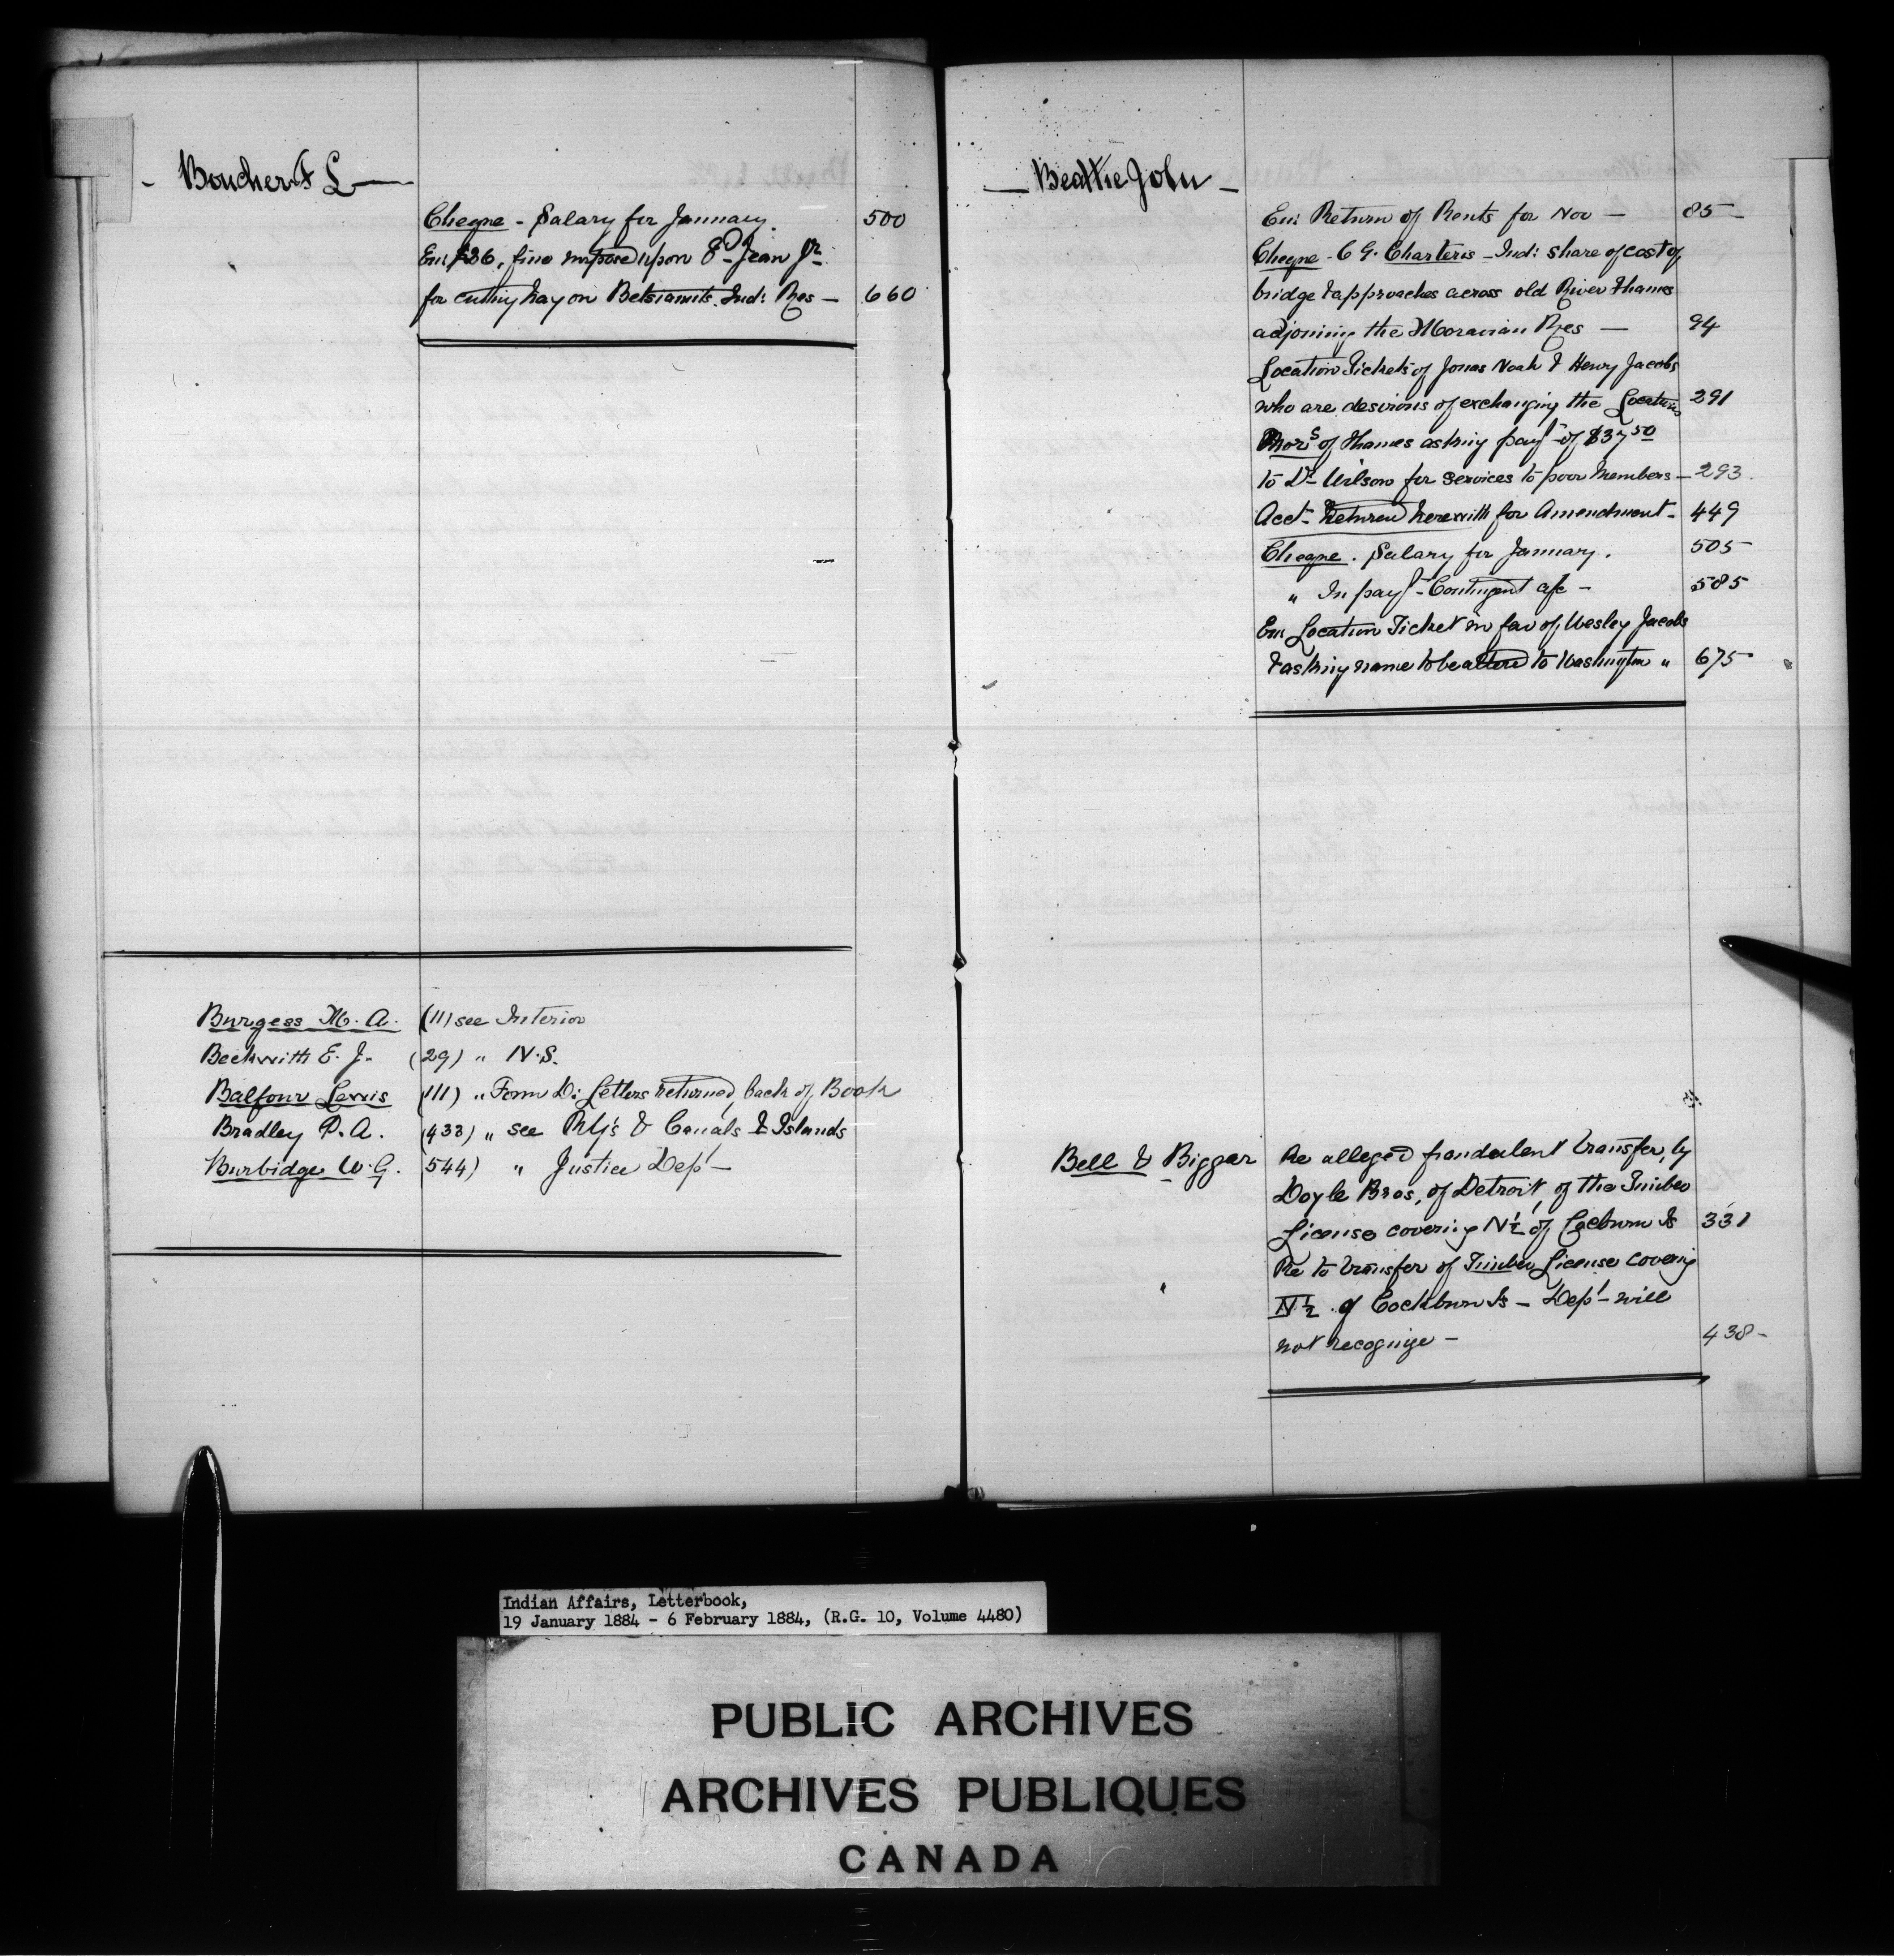 - Boucher F L -
Cheque - Salary for January. 500
Enc $26, fine impose upon Ed Jean Jr
for cutting hay on Betsiamits Ind: Res - 660
Burgess M. A. (11) see Interior
Beckwith E. J. (29) " N.S.
Balfour Lewis (111) " Form D: Letters returned, back of Book
Bradley P. A. (433) " see Rly's & Canals & Islands
Burbidge W. G. (544) " Justice Dept -
- Beattie John -
Enc Return of Rents for Nov - 85
Cheque - C G. Charteris - Ind: share of cost of
bridge & approaches across old River Thames
adjoining the Moravian Res - 94
Location Tickets of Jonas Noah & Henry Jacobs
who are desirous of exchanging the Locations 291
Mors of Thames asking payt of $37 50
to Dr Wilson for services to poor members - 293
Acct Returned herewith for Amendment - 449
Cheque. Salary for January. 505
" In payt - Contingent a/c - 585
Enc Location Ticket in fav of Wesley Jacobs
& asking name to be altered to Washington " 675
Bell & Biggar Re alleged fraudulent transfer, by
Doyle Bros, of Detroit, of the Timber
License covering N½ of Cocburn Is 331
" Re to transfer of Timber License covering
N½ of Cockburn Is - Dept - will
not recognize - 438 -
Indian Affairs, Letterbook,
19 January 1884 - 6 February 1884, (R.G. 10, Volume 4480)
PUBLIC ARCHIVES
ARCHIVES PUBLIQUES
CANADA